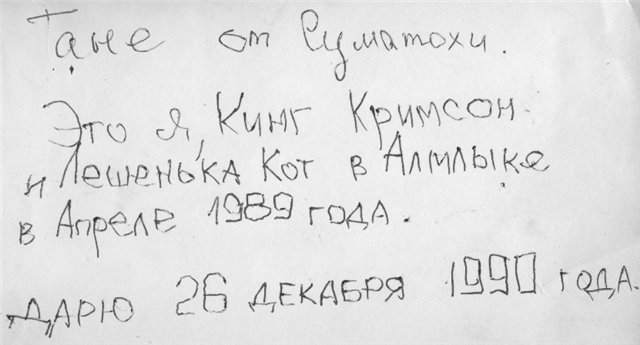 Тане от Суматохи.
Это я, Кинг Кримсон
и Лешенька Кот в Алмлыке
в Апреле 1989 года.
ДАРЮ 26 ДЕКАБРЯ 1990 года.